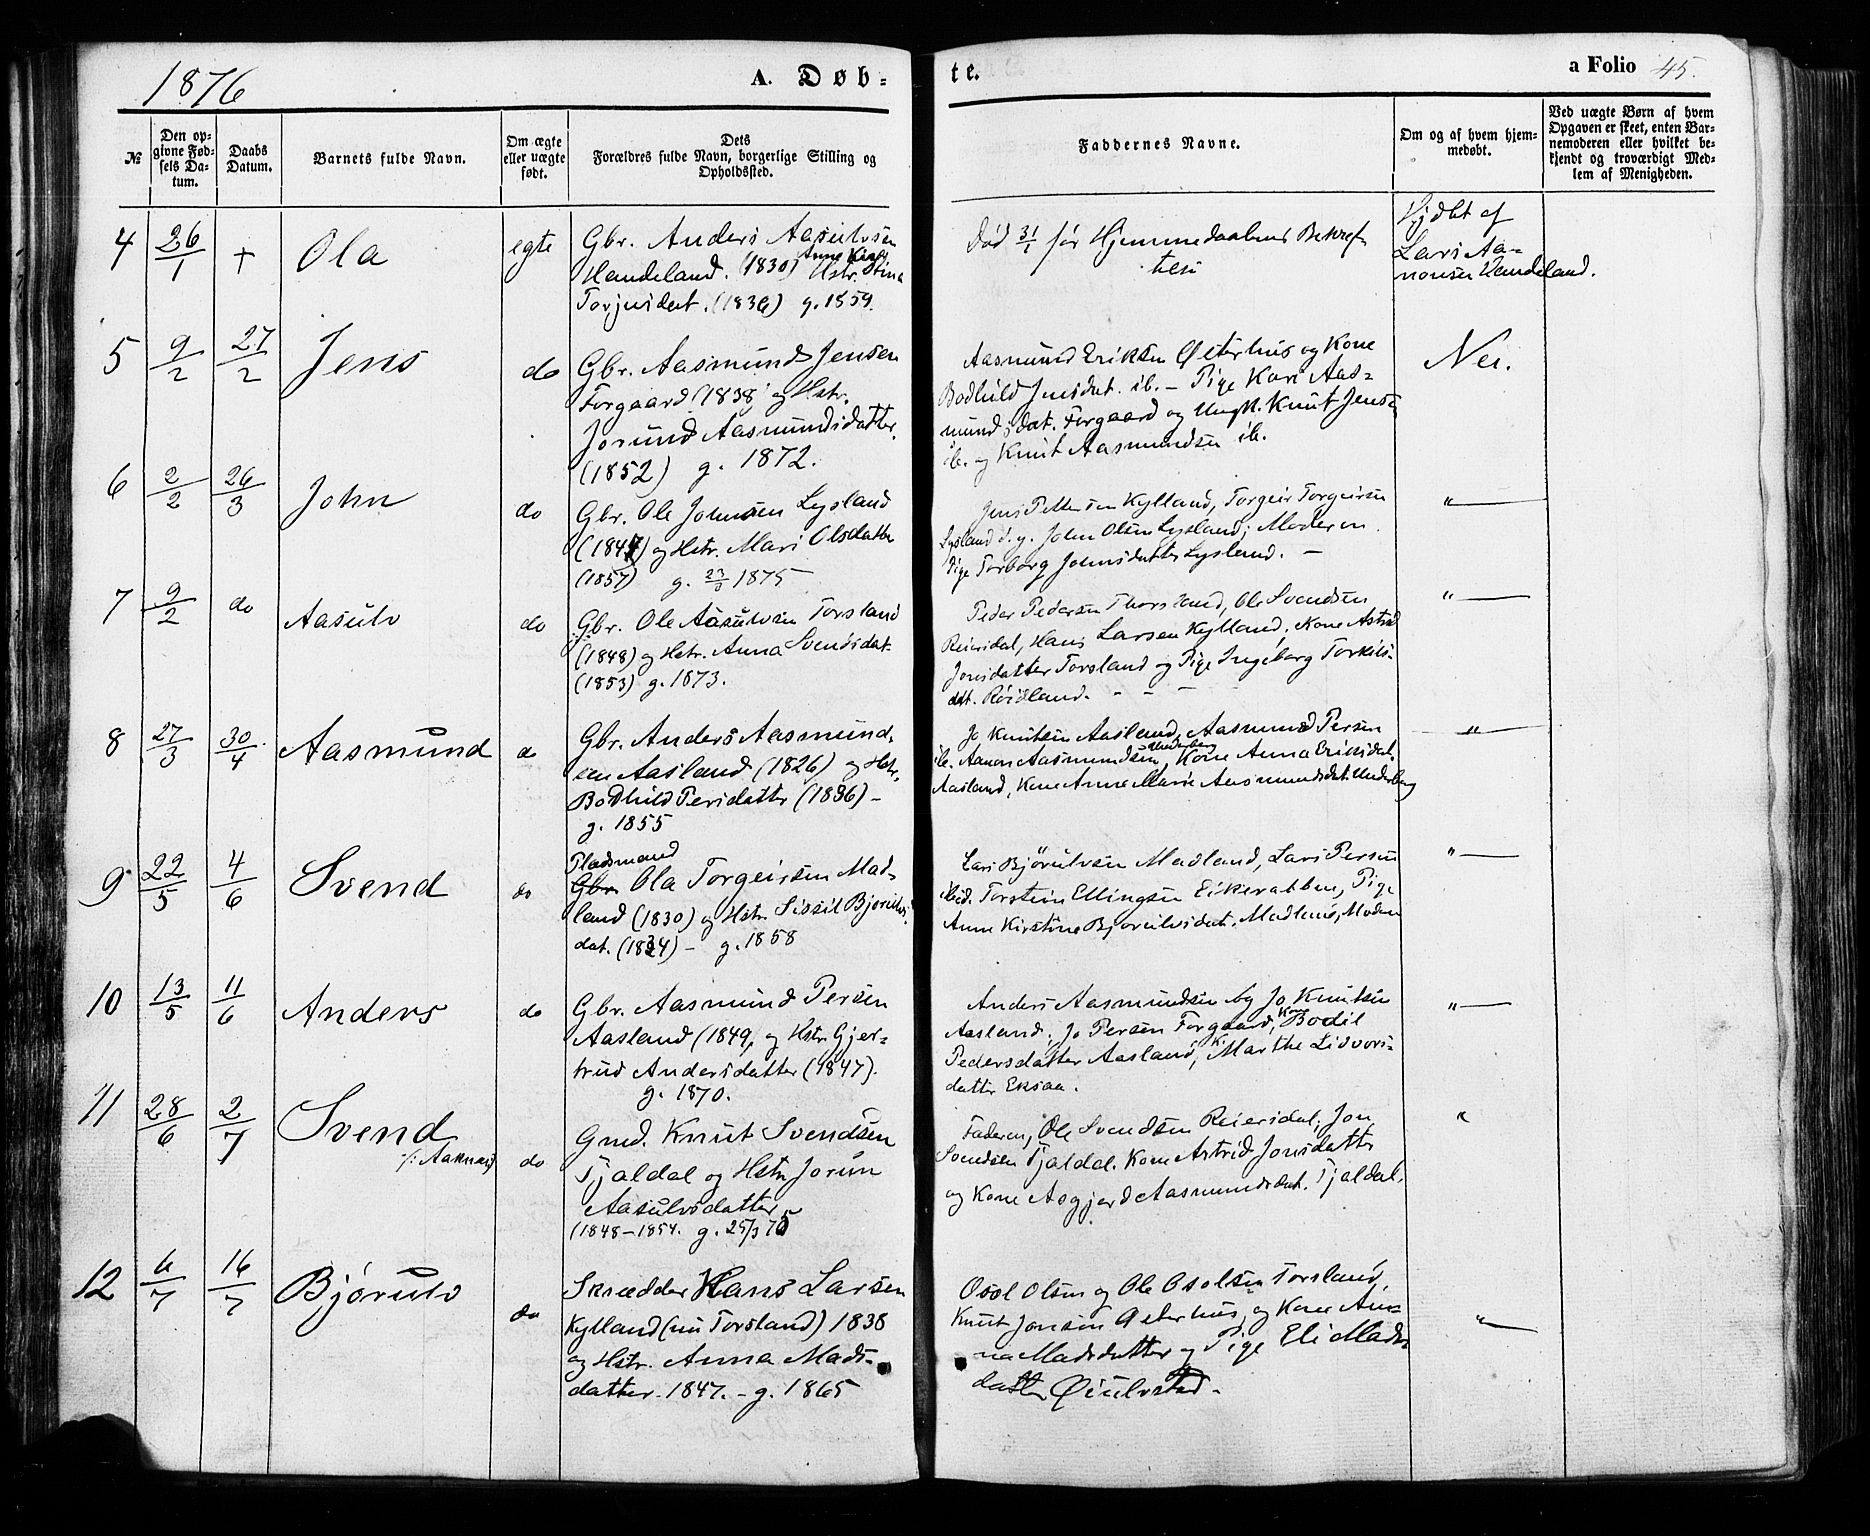 1876
A. Døb=
te.
a Folio 45.
№
Den op=
givne Fød=
sels Da=
tum.
Daabs
Datum.
Barnets fulde Navn.
Om ægte
eller uægte
født.
Dets
Forældres fulde Navn, borgerlige Stilling og
Opholdssted.
Faddernes Navne.
Om og af hvem hjem=
medøbt.
Ved uægte Børn af hvem
Opgaven er skeet, enten Bar=
nemoderen eller hvilket be=
kjendt og troværdigt Med=
lem af Menigheden.
4 26/1 + Ola egte
Gbr. Anders Aasulvsen
Handeland. (1830) Hstr. Anne Kirstina
Torjusdat. (1836) g. 1859.
Død 31/1 før Hjemmedaabens Bekref=
telse
Hjdbt af
Lars Aa=
nonsen Handeland.
5 9/2 27/2 Jens do
Gbr. Aasmund Jensen
Forgaard (1838) og Hstr.
Jorund Aasmundsdatter.
(1852) g. 1872.
Aasmund Eriksen Østerhus og Kone
Bodhild Jensdat. ib. – Pige Kari Aas=
mundsdat. Forgaard og Ungk. Knut Jensen
ib. og Knut Aasmundsen ib.
Nei.
6 2/2 26/3 John do
Gbr. Ole Johnsen Lysland
(1847) og Hstr. Mari Olsdatter
(1857) g. 23/3 1875
Jens Pettersen Kylland, Torgeir Torgeirsen
Lysland d. y. John Olsen Lysland; Moderen.
Pige Torborg Johnsdatter Lysland. –
"
7 9/2 do Aasulv do
Gbr. Ole Aasulvsen Torsland
(1848) og Hstr. Anna Svendsdat.
(1853) g. 1873.
Peder Pedersen Thorsland, Ole Svendsen
Reiersdal, Hans Larsen Kylland. Kone Astrid
Jonsdatter Torsland og Pige Ingeborg Torkils=
dat. Røisland. - - -
"
8 27/3 30/4 Aasmund do
Gbr. Anders Aasmund=
sen Aasland (1826) og Hstr.
Bodhild Persdatter (1836) –
g. 1855
Jo Knutsen Aasland, Aasmund Persen
ib. Aanon Aasmundsen Underberg, Kone Anna Eriksdat.
Aasland, Kone Anne Marie Aasmundsdat. Underberg
"
9 22/5 4/6 Svend do
Pladsmand
Gbr. Ola Torgeirsen Mad=
land (1830) og Hstr. Sissil Bjorulvs
dat. (1834) – g. 1858
Lars Bjørulvsen Madland, Lars Persen
ibid. Torstein Ellingsen Eikerabben, Pige
Anne Kirstine Bjorulvsdat. Madland, Moderen
"
10 13/5 11/6 Anders do
Gbr. Aasmund Persen
Aasland (1849) og Hstr. Gjer=
trud Andersdatter (1847).
g. 1870.
Anders Aasmundsen og Jo Knutsen
Aasland, Jo Persen Forgaard, Kone Bodil
Pedersdatter Aasland, K. Marthe Lidvors=
datter Eksaa.
"
11 28/6 2/7 Svend do
Gmd. Knut Svendsen
Tjaldal og Hstr. Jorun
Aasulvsdatter
(1848–1854. g. 25/3 75
Faderen, Ole Svendsen Reiersdal, Jon
Svendsen Tjaldal. Kone Astrid Jonsdatter
og Kone Asgjerd Aasmundsdat. Tjaldal.
"
12 6/7 16/7 Bjørulv do
Skrædder Hans Larsen
Kylland (nu Torsland) 1838
og Hstr. Anna Mads=
datter 1847. – g. 1865
Osol Olsen og Ole Osolsen Torsland,
Knut Jonsen Østerhus, og Kone An=
na Madsdatter og Pige Eli Mads=
datter Øiulvstad.
"